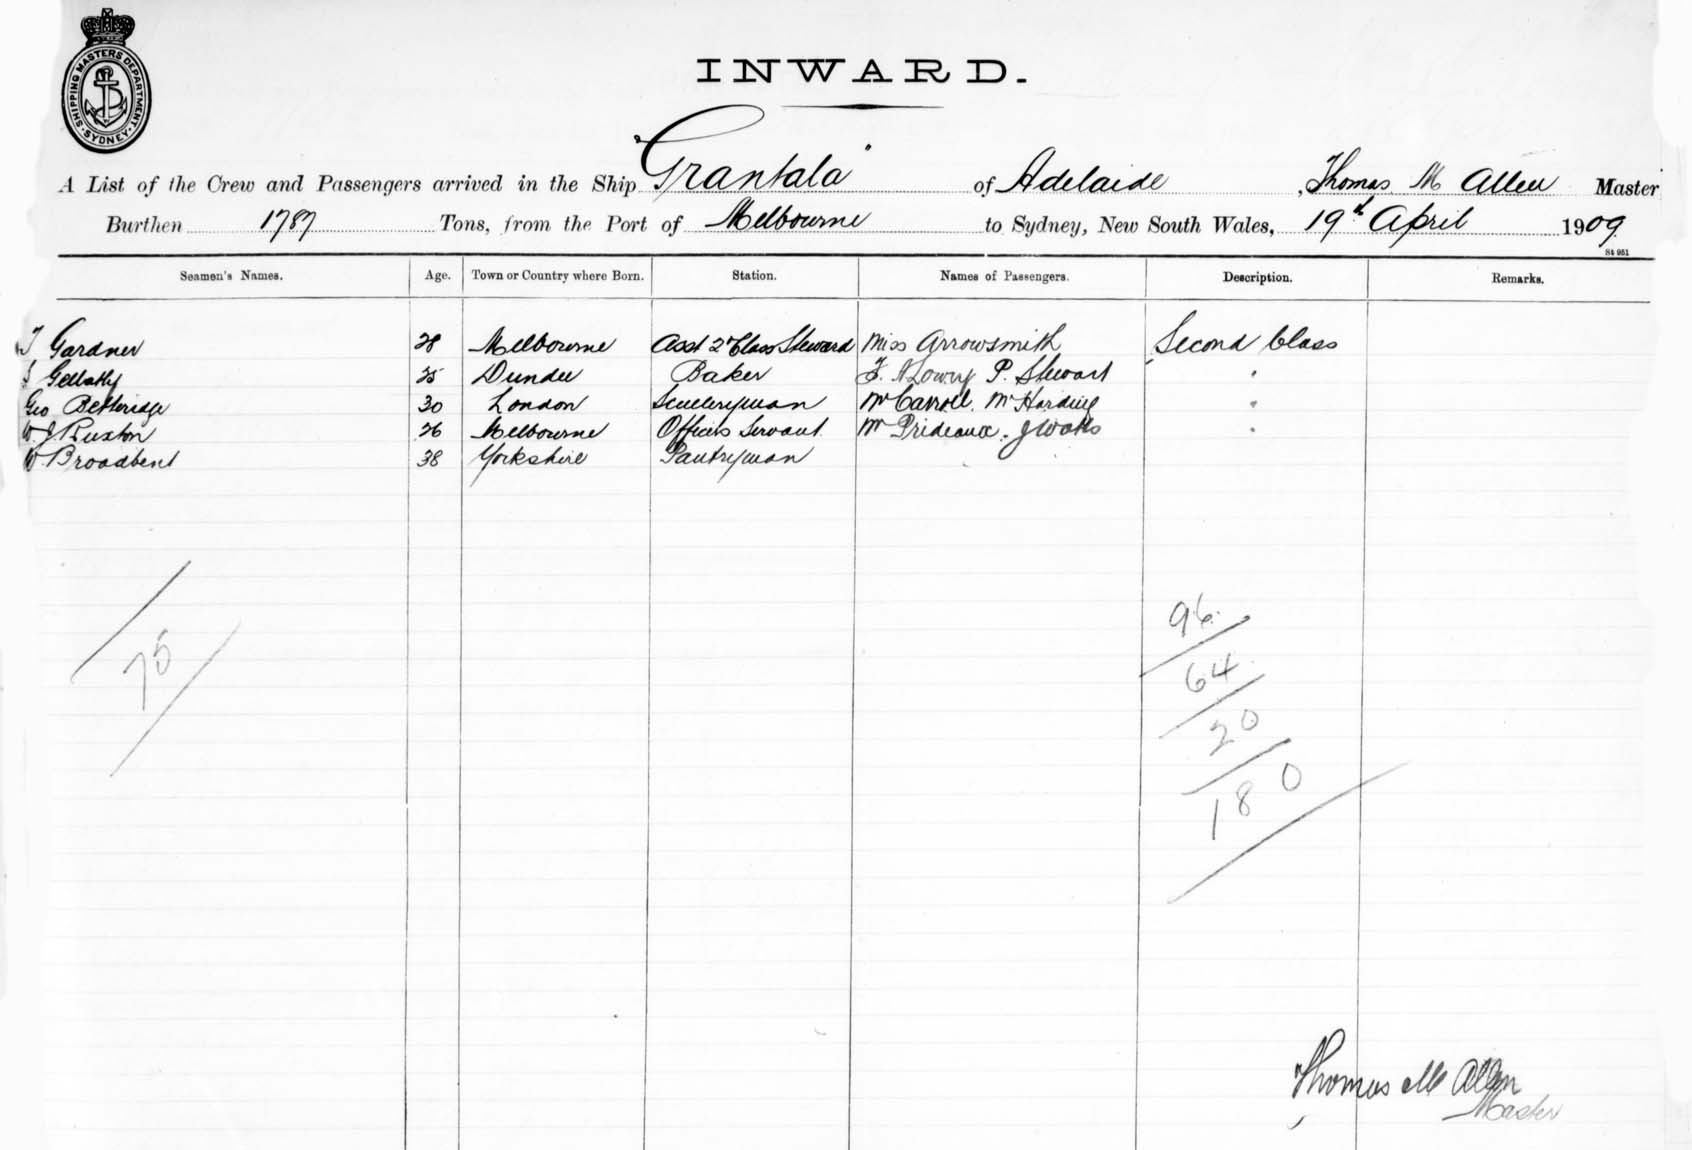 SHIPPING MASTERS DEPARTMENT
SYDNEY
INWARD.
A List of the Crew and Passengers arrived in the Ship "Grantala" of Adelaide, Thomas M Allen Master
Burthen 1787 Tons, from the Port of Melbourne to Sydney, New South Wales, 19th April 1909
St 951
Seamen's Names. Age. Town or Country where Born. Station. Names of Passengers. Description. Remarks.
Gardner 28 Melbourne Asst 2nd Class Steward Miss Arrowsmith Second Class
Gellatly 25 Dundee Baker F. Lowry P. Stewart "
Geo Betteridge 30 London Sculleryman Mr Carroll. Mr Harding "
W. J Ruxton 26 Melbourne Officers Servant Mr Prideaux. J Watts "
W Broadbent 38 Yorkshire Pantryman
75
96
64
20
180
Thomas M Allen
Master